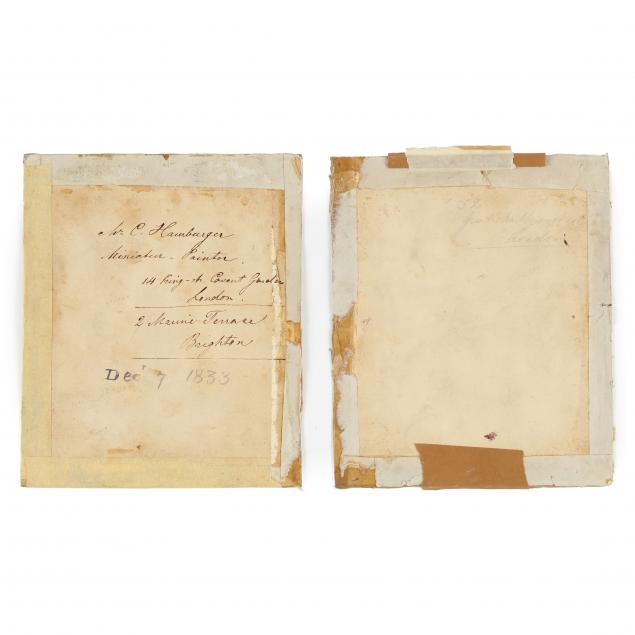 Mr C. Hamburger
Miniature Painter.
14 King-st. Covent Garden
London.
2 Marine Terrace
Brighton
Dec 7 1833
London